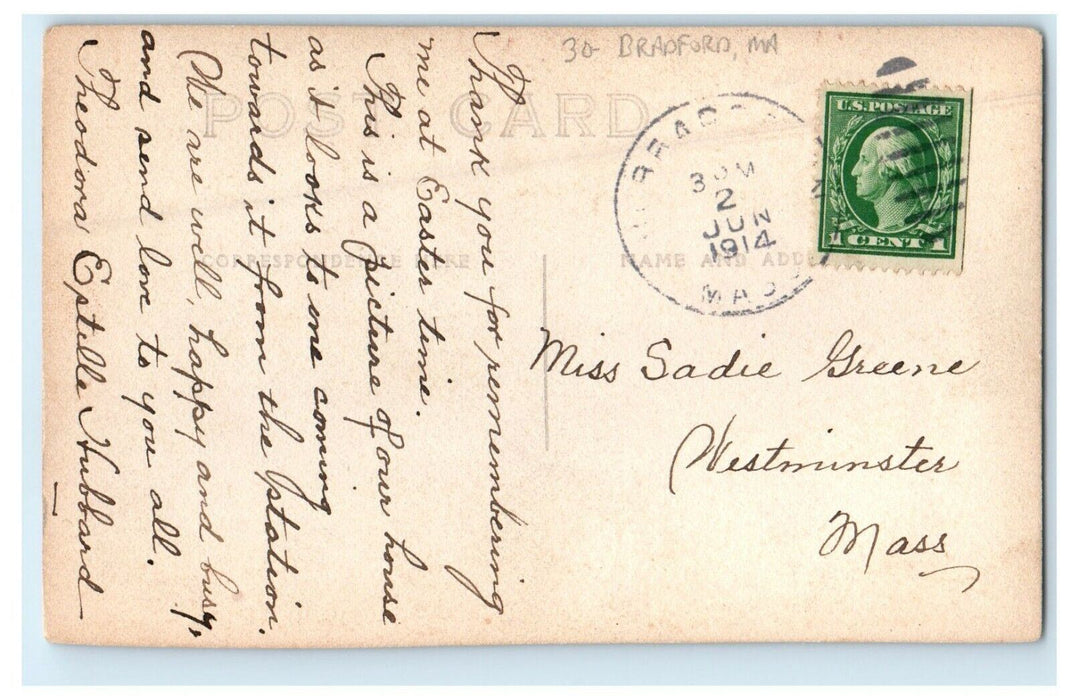 30- BRADFORD, MA
POST CARD
U.S. POSTAGE
1 CENT 1
BRAD
3 PM
2
JUN
1914
MAS
CORRESPONDENCE HERE
NAME AND ADDRESS
Thank you for remembering
me at Easter time.
This is a picture of our house
as it looks to one coming
towards it from the station.
We are well, happy and busy,
and send love to you all.
Theodora Estelle Hubbard
Miss Sadie Greene
Westminster
Mass